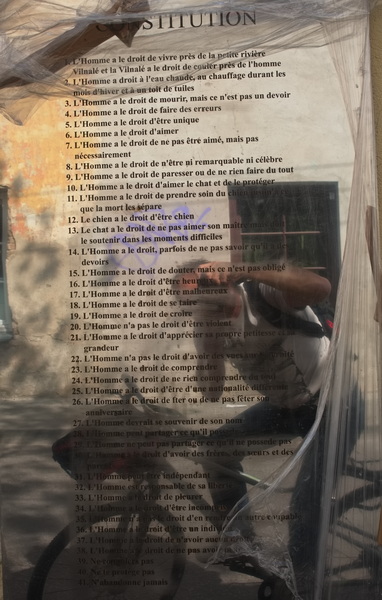 CONSTITUTION
1. L'Homme a le droit de vivre près de la petite rivière
Vilnalé et la Vilnalé a le droit de couler près de l'homme
2. L'Homme a droit à l'eau chaude, au chauffage durant les
mois d'hiver et à un toit de tuiles
3. L'Homme a le droit de mourir, mais ce n'est pas un devoir
4. L'Homme a le droit de faire des erreurs
5. L'Homme a le droit d'être unique
6. L'Homme a le droit d'aimer
7. L'Homme a le droit de ne pas être aimé, mais pas
nécessairement
8. L'Homme a le droit de n'être ni remarquable ni célèbre
9. L'Homme a le droit de paresser ou de ne rien faire du tout
10. L'Homme a le droit d'aimer le chat et de le protéger
11. L'Homme a le droit de prendre soin du chien
que la mort les sépare
12. Le chien a le droit d'être chien
13. Le chat a le droit de ne pas aimer son maitre
le soutenir dans les moments difficiles
14. L'Homme a le droit, parfois de ne pas savoir qu'il
devoirs
15. L'Homme a le droit de douter, mais ce n'est pas obligé
16. L'Homme a le droit d'être heureux
17. L'Homme a le droit d'être malheureux
18. L'Homme a le droit de se taire
19. L'Homme a le droit de croire
20. L'Homme n'a pas le droit d'être violent
21. L'Homme a le droit d'apprécier sa propre petitesse et sa
grandeur
22. L'Homme n'a pas le droit d'avoir des vues sur
23. L'Homme a le droit de comprendre
24. L'Homme a le droit de ne rien comprendre du tout
25. L'Homme a le droit d'être d'une nationalité différente
26. L'Homme a le droit de fter ou de ne pas fêter son
anniversaire
27. L'Homme devrait se souvenir de son nom
28. L'Homme peut partager ce qu'il possède
29. L'Homme ne peut pas partager ce qu'il ne possède pas
30. L'Homme a le droit d'avoir des frères, des sœurs et des
31. L'Homme peut être indépendant
32. L'Homme est responsable de sa liberté
33. L'Homme a le droit de pleurer
34. L'Homme a le droit d'être incompris
35. L'Homme n'a pas le droit d'en rendre un autre coupable
36. L'Homme a le droit d'être un individu
37. L'Homme a le droit de n'avoir aucun
38. L'Homme a le droit de ne pas avoir
41. N'abandonne jamais